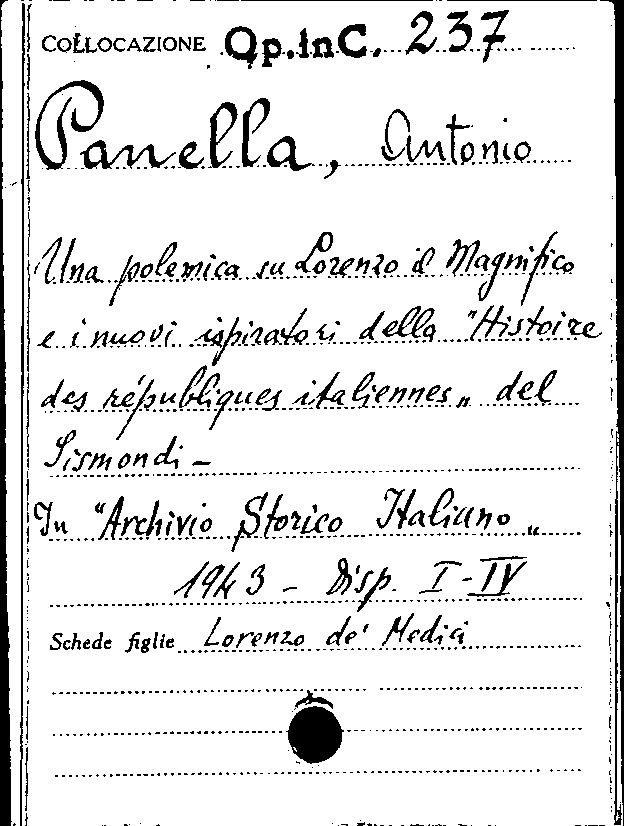 COLLOCAZIONE Op.InC. 237
Panella, Antonio
Una polemica su Lorenzo il Magnifico
e i nuovi ispiratori della "Histoire
des républiques italiennes„ del
Sismondi -
In "Archivio Storico Italiano„
1943 - Disp. I-IV
Schede figlie Lorenzo de' Medici